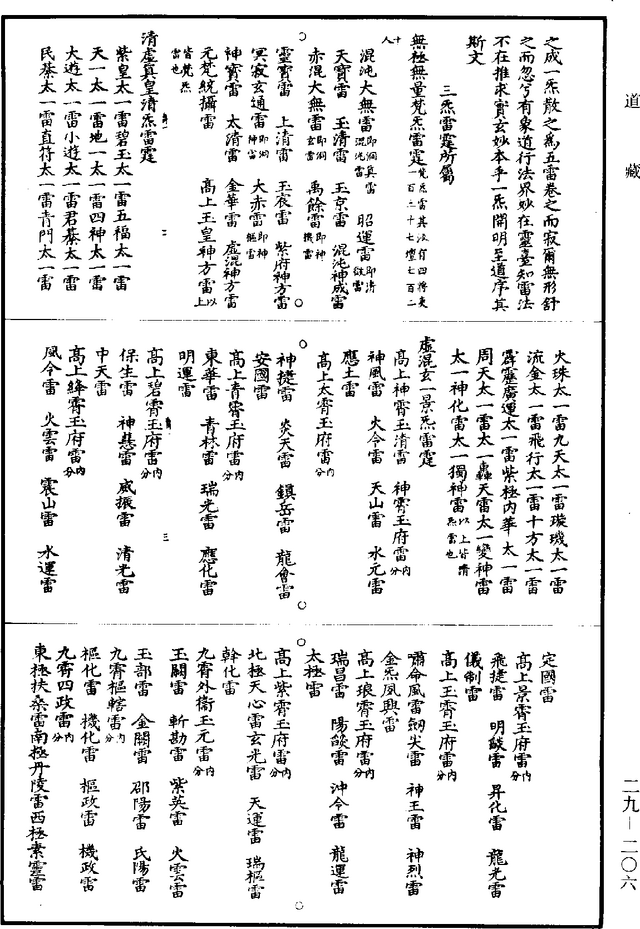 道藏
之成一炁散之為五雷卷之而寂爾無形舒
之而忽兮有象道行法界妙在靈臺知雷法
不在推求實玄妙本乎一炁開明至道序其
斯文
三炁雷霆所屬
無極無量梵炁雷霆梵炁雷其法有四將東一百三十七壇七百二
十人
混沌大無雷即洞真雷混洞雷 昭運雷即清微雷
天寶雷 玉清雷 玉京雷 混沌神成雷
赤混大無雷即洞玄雷 禹餘雷即神機雷
靈寶雷 上清雷 玉宸雷 紫府神方雷
冥寂玄通雷即洞神雷 大赤雷即神樞雷
神寶雷 太清雷 金華雷 虛混神方雷
元梵統攝雷 高上玉皇神方雷以上
皆梵炁雷也
清虛真皇清炁雷霆
紫皇太一雷碧玉太一雷五福太一雷
天一太一雷地一太一雷四神太一雷
大遊太一雷小遊太一雷君綦太一雷
民綦太一雷直符太一雷青門太一雷
二
火珠太一雷九天太一雷璇璣太一雷
流金太一雷飛行太一雷十方太一雷
霹靂廣運太一雷紫極內華太一雷
周天太一雷太一轟天雷太一變神雷
太一神化雷太一獨神雷以上皆清炁雷也
虛混玄一景炁雷霆
高上神霄玉清雷 神霄玉府雷內分
神風雷 火令雷 天山雷 水元雷
應土雷
高上太霄玉府雷內分
神捷雷 炎天雷 鎮岳雷 龍會雷
安國雷
高上青霄玉府雷內分
東華雷 青林雷 瑞光雷 應化雷
明運雷
高上碧霄玉府雷內分
保生雷 神慧雷 威振雷 清光雷
中天雷
高上絳霄玉府雷內分
風令雷 火雲雷 震山雷 水運雷
三
定國雷
高上景霄玉府雷內分
飛捷雷 明燄雷 昇化雷 龍光雷
儀制雷
高上玉霄玉府雷內分
嘯命風雷劒尖雷 神王雷 神烈雷
金炁夙興雷
高上琅霄玉府雷內分
瑞昌雷 陽燄雷 沖令雷 龍運雷
太極雷
高上紫霄玉府雷內分
北極天心雷玄光雷 天運雷 瑞樞雷
幹化雷
九霄外衛玉元雷內分
玉闕雷 斬勘雷 紫英雷 火雲雷
玉部雷 金闕雷 邵陽雷 氏陽雷
九霄樞轄雷內分
樞化雷 機化雷 樞政雷 機政雷
九霄四政雷內分
東極扶桑雷南極丹陵雷西極素靈雷
二九—二〇六